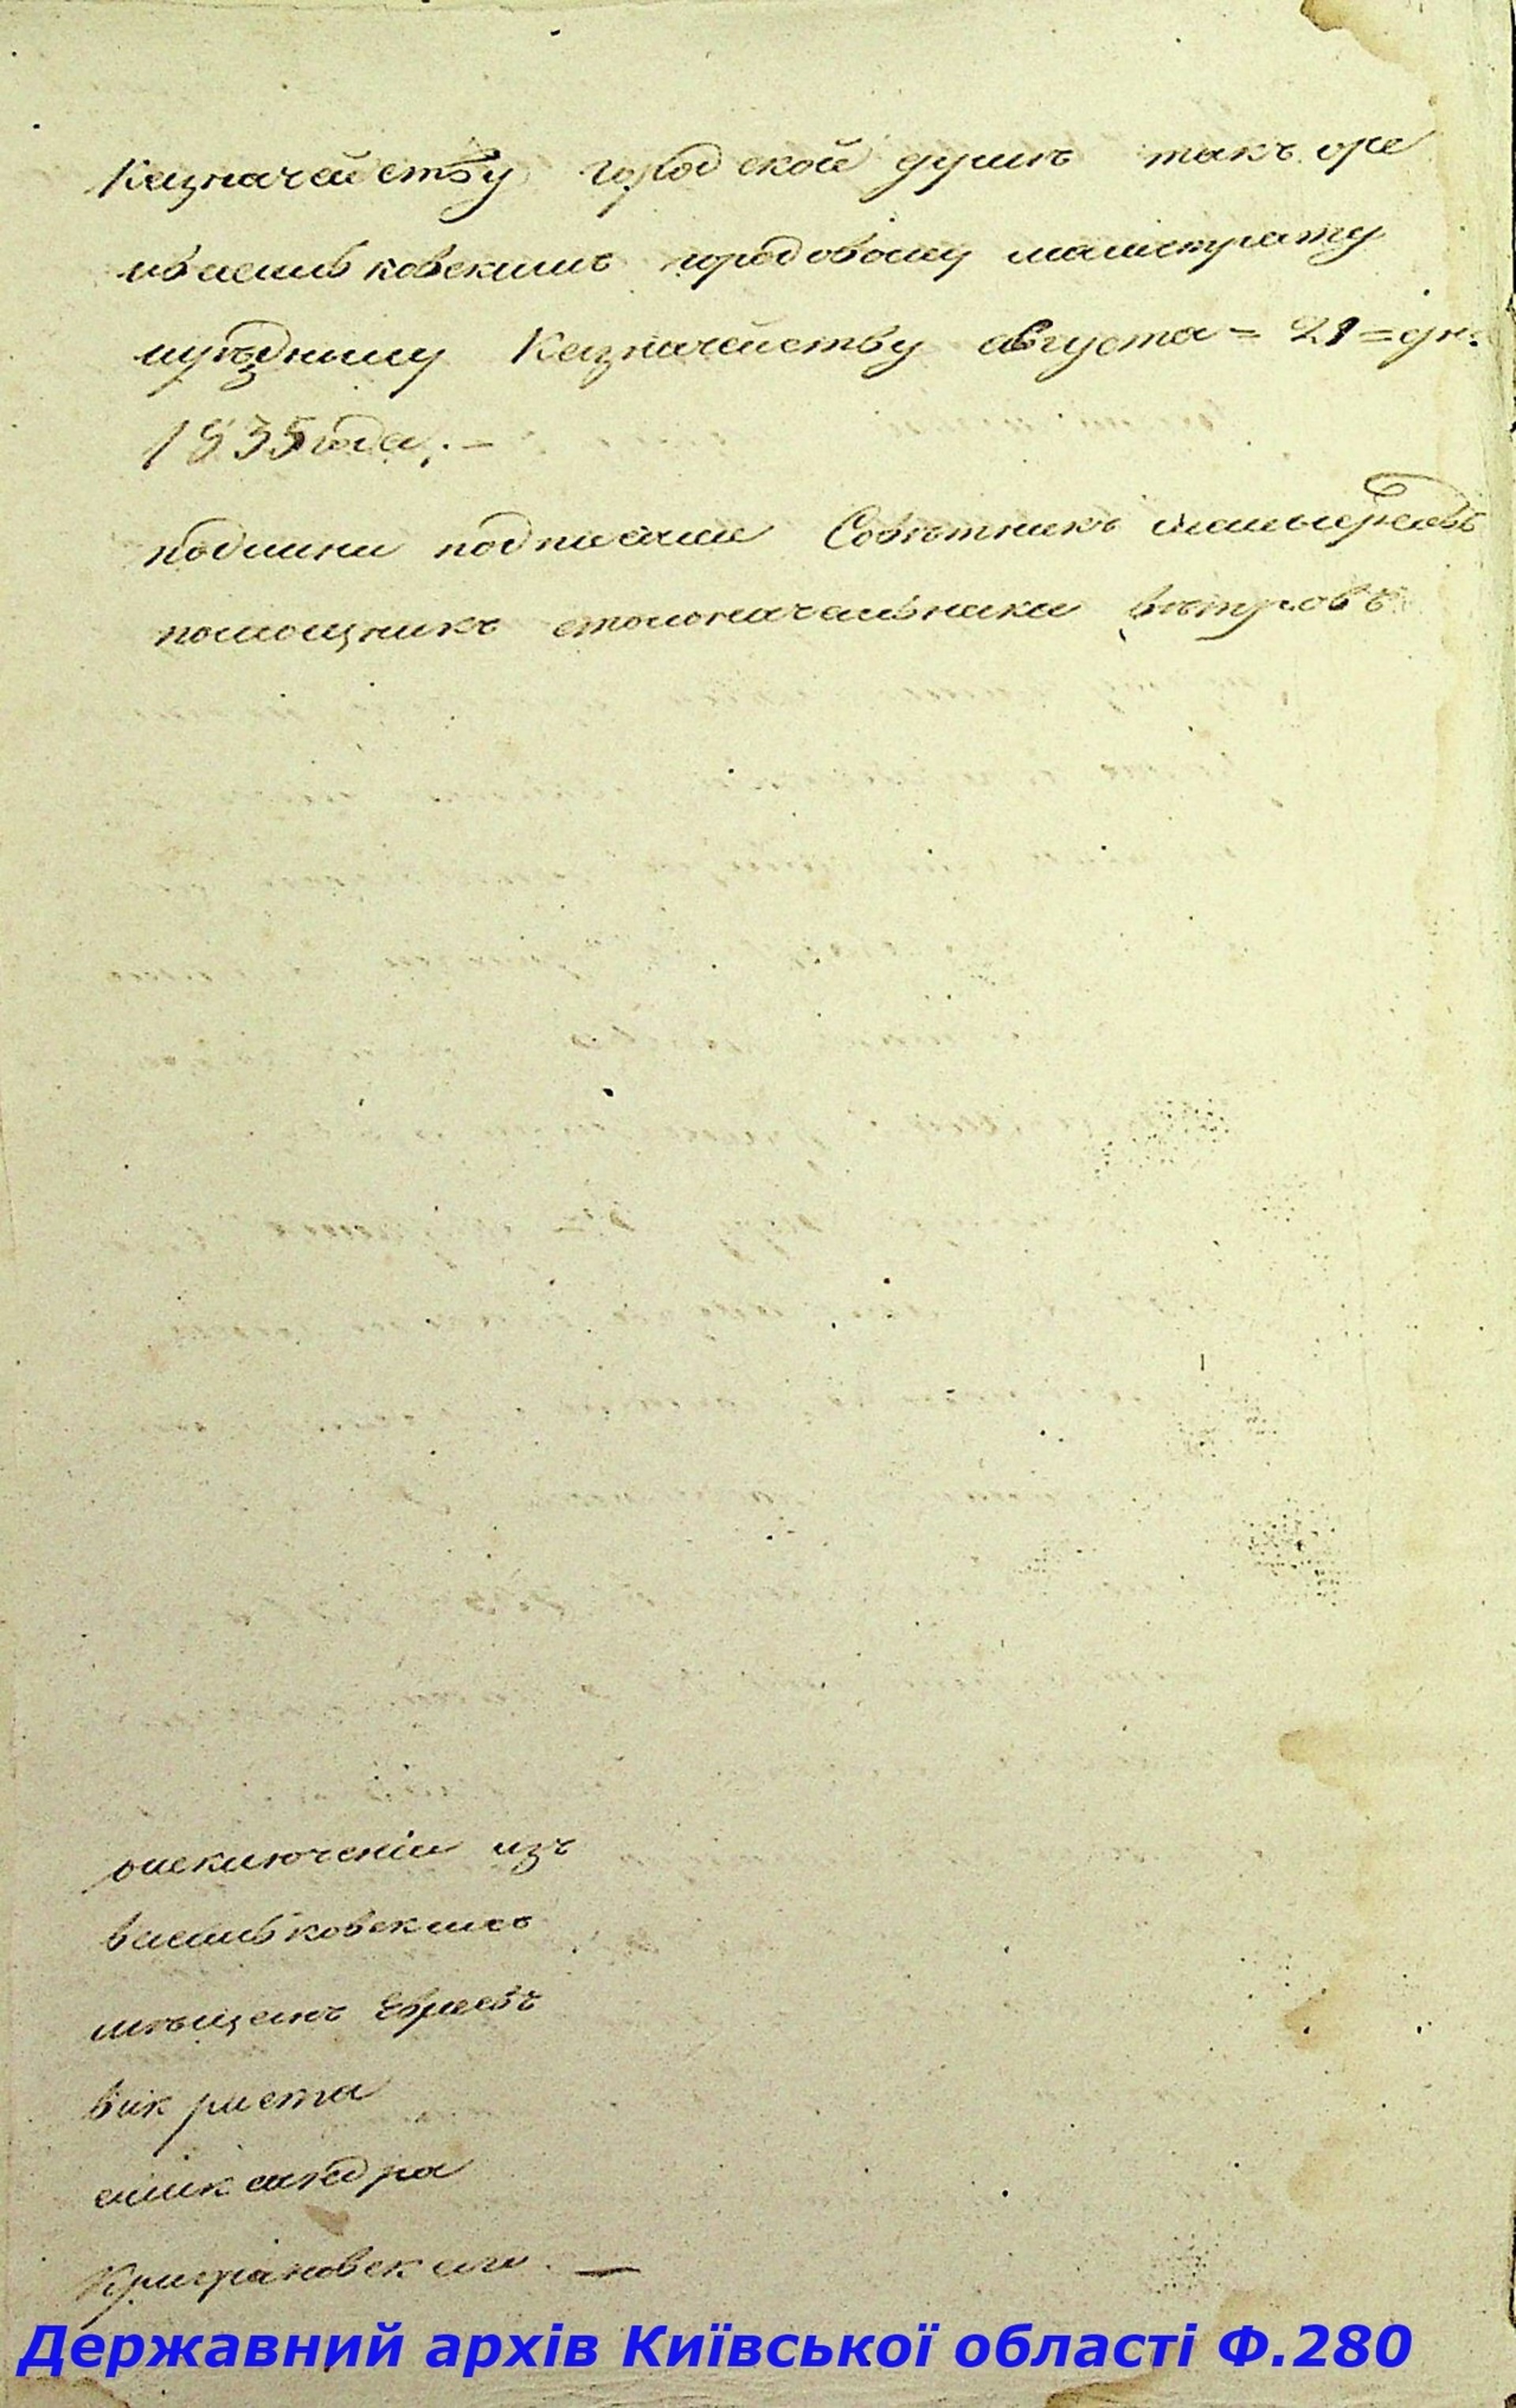 Казначейству городской думѣ такъ оре
ивасильковскимъ городовому магистрату
иуѣздному Казначейству августа = 21 = дн.
1835 года. —
подлини подписали Совѣтникъ
помощникъ столоначальника вѣтровъ
оисключеніи изъ
васильковскихъ
мѣщанъ Евреевъ
викриста
александра
Крижановскаго. —
Державний архів Київської області Ф.280